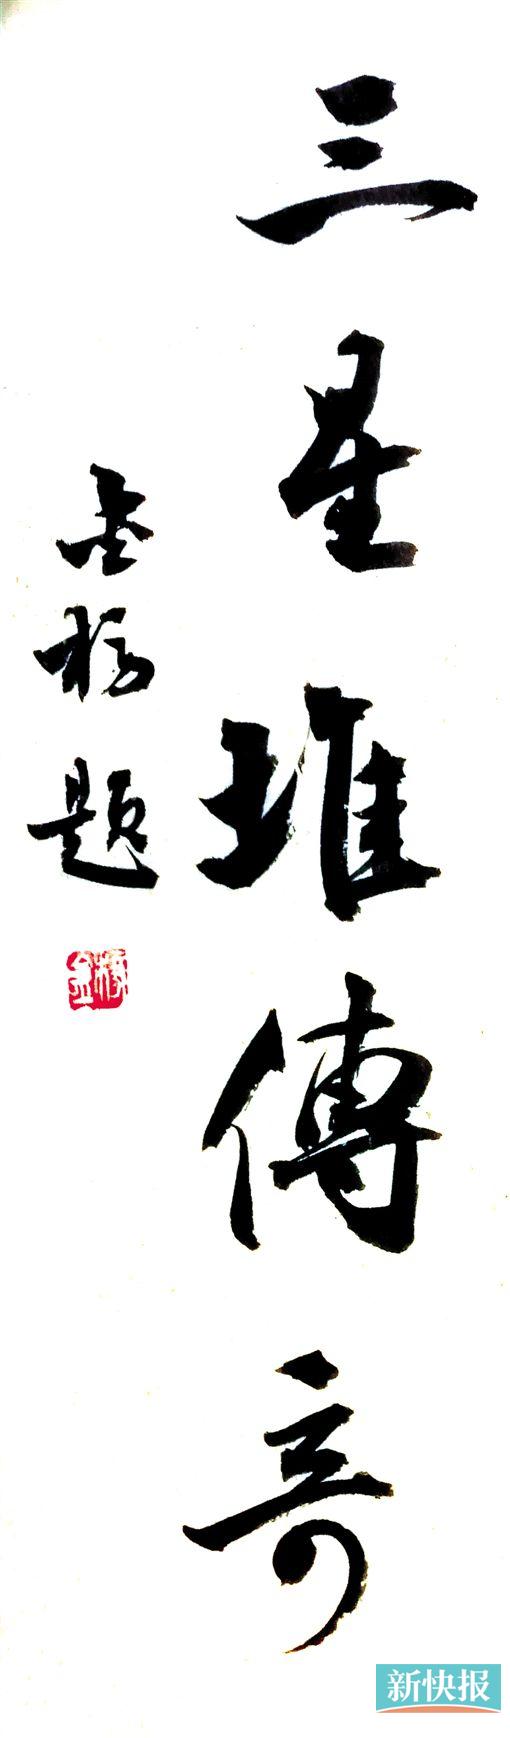 三星堆傳奇
金楊題
新快报